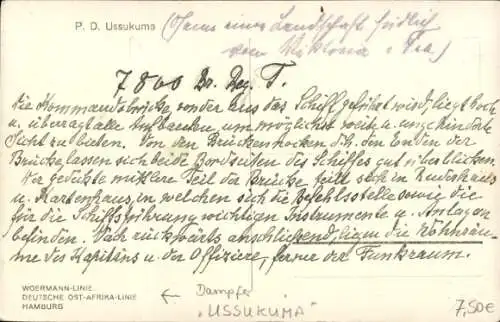 P. D. Ussukuma (Name einer Landschaft südlich
vom Viktoria - See)
7800 Br. Reg. T.
Die Kommandobrücke, von der aus das Schiff geführt wird, liegt hoch
u. überragt alle Aufbauten um möglichst weite u. ungehinderte
Sicht zu bieten. Von den Brückennocken d.h. den Enden der
Brücke lassen sich beide Bordseiten des Schiffes gut überblicken.
Der gedeckte mittlere Teil der Brücke teilt sich in Ruderhaus
u. Kartenhaus, in welchen sich die Befehlsstelle sowie die
für die Schiffsführung wichtigen Instrumente u. Anlagen
befinden. Nach rückwärts anschließend, liegen die Wohnräu-
me des Kapitäns u. der Offiziere, ferner der Funkraum.
WOERMANN-LINIE
DEUTSCHE OST-AFRIKA-LINIE
HAMBURG
← Dampfer
"USSUKUMA"
7,50€